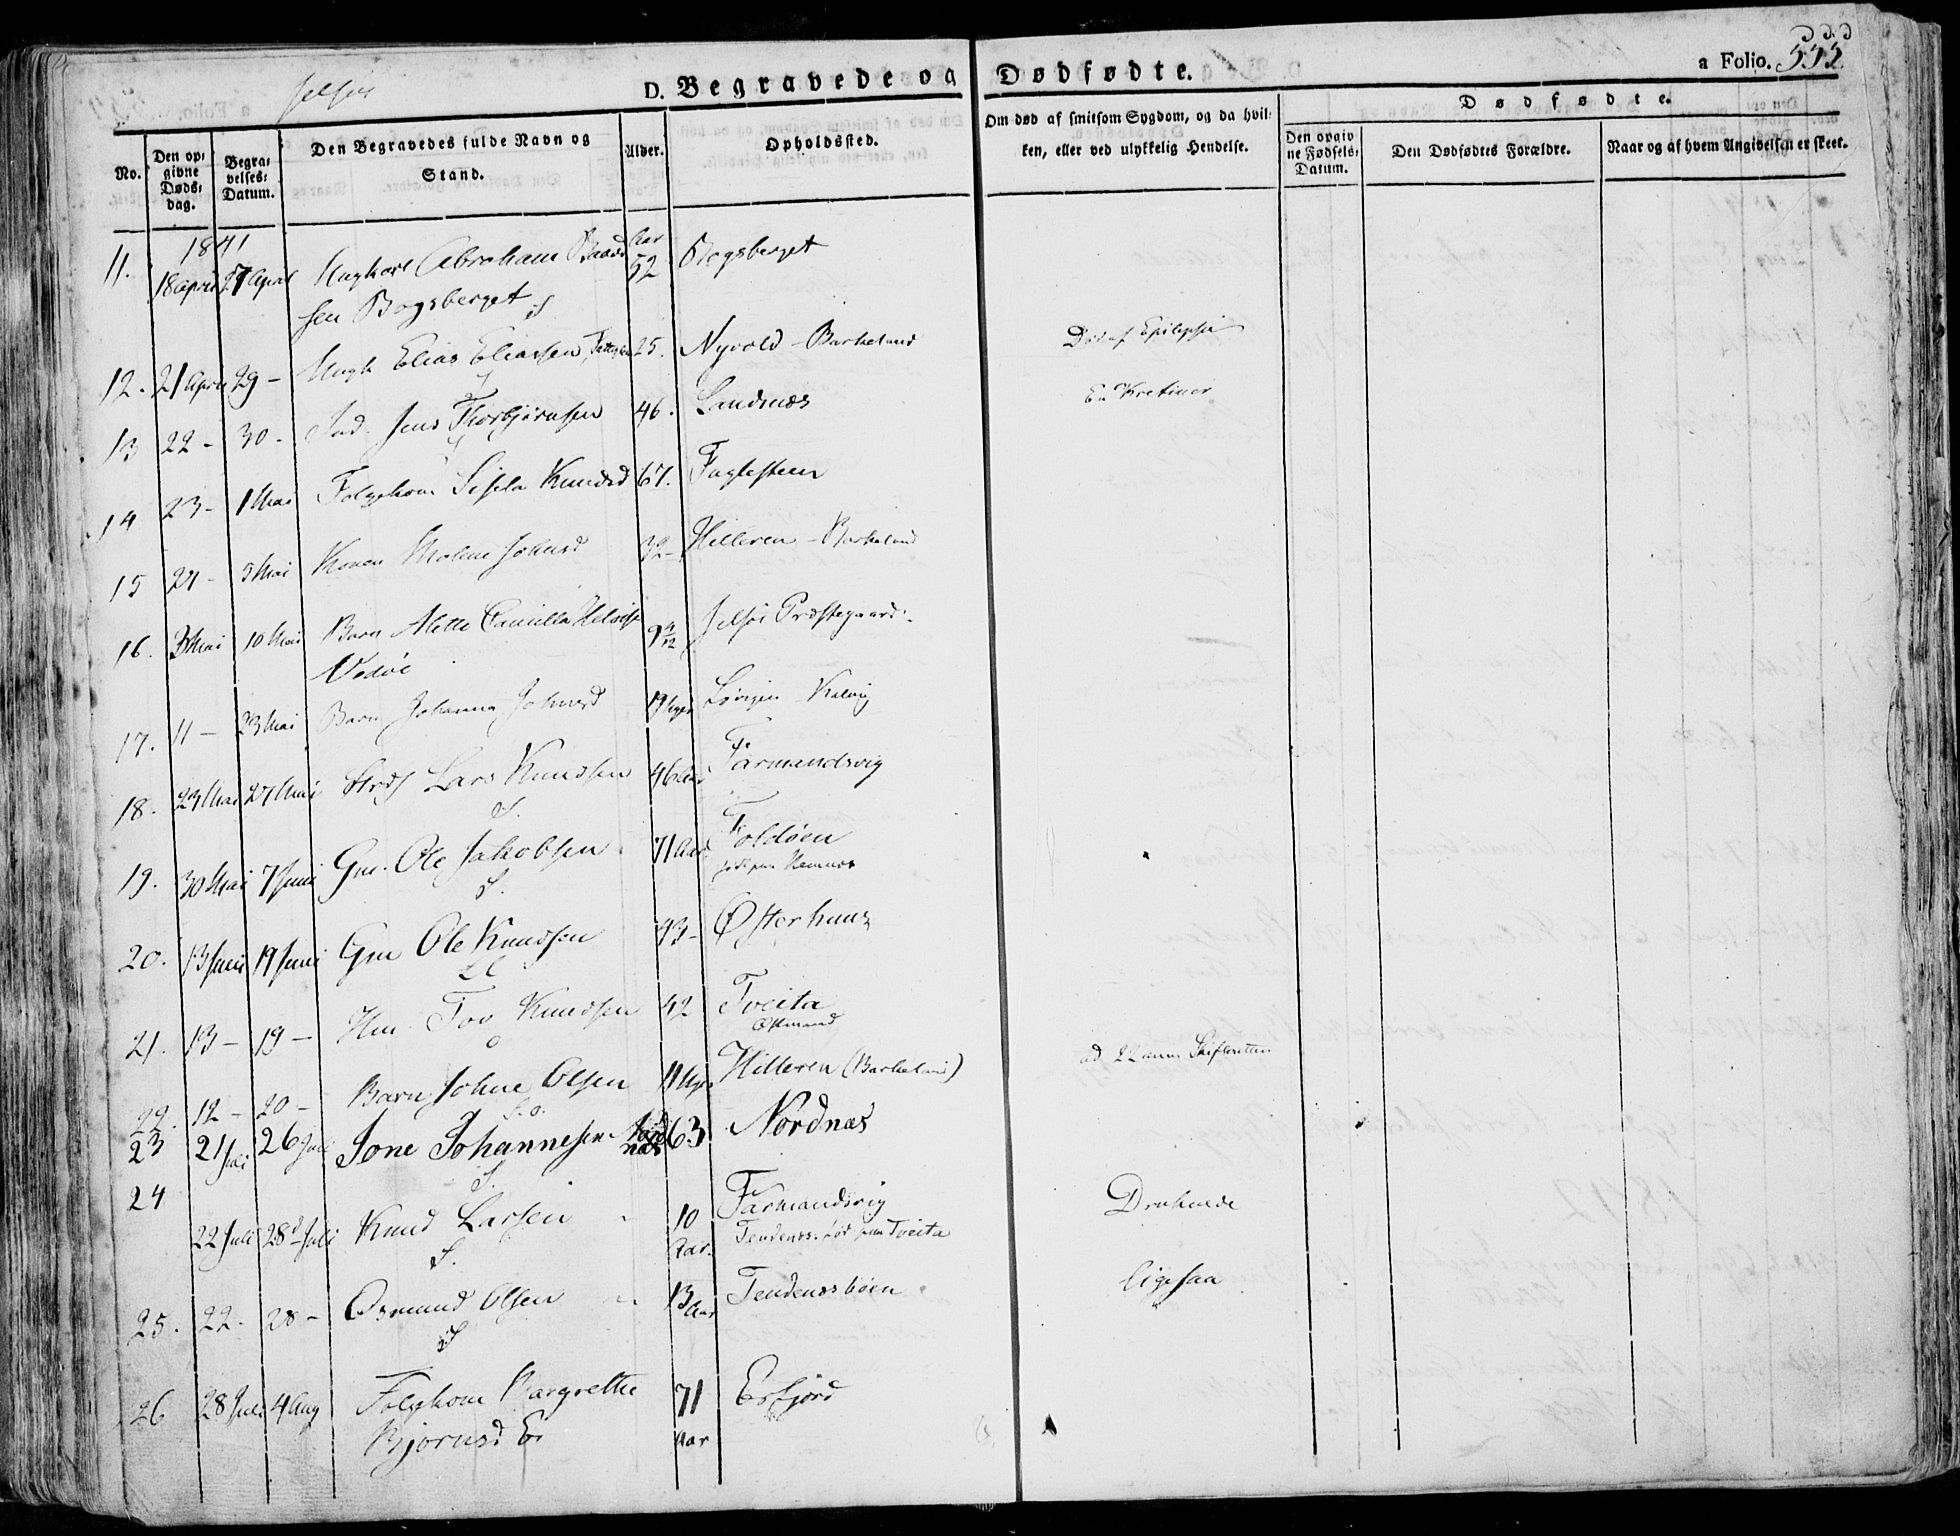 Jelsøe
D. Begravede og Dødfødte.
a Folio. 533
No.
Den op-
givne
Døds-
dag.
Begra-
velses-
Datum.
Den Begravedes fulde Navn og
Stand.
Alder.
Opholdssted.
Om død af smitsom Sygdom, og da hvil-
ken, eller ved ulykkelig Hendelse.
Dødfødte.
Den opgiv-
ne Fødsels-
Datum.
Den Dødfødtes Forældre.
Naar og af hvem Angivelsen er skeet.
1841
11. 18 April 27 April Abraham Baards Aar 52 Bogsberget
sen Bogsberget
12. 21 April 29 - Elias Eliassen 25. Nyvold - Barkeland Død af Epilepsie
13 22 - 30 - Ind. Jens Thorbjørnsen 46. Landnæs En Kretiner
14 23 - 1 Mai Folgekone Sisela Knudsd 67. Fuglesteen
15 24 - 5 Mai Konen Malene Johnsd 32 - Hilleren - Barkeland
16. 3 Mai 10 Mai Barn Mette Camilla 9 4/12 Jelsøe Præstegaard.
17. 11 - 23 Mai Barn Johanna Johnsd 19 Uger Kalvig
18. 23 Mai 27 Mai Lars Knudsen 46 Aar Farmandsvig
S.
19. 30 Mai 7 Juni Gm. Ole Jakobsen 71 Aar Foldøen
S.
20. 13 Juni 19 Juni Gm Ole Knudsen 43 - Østerhuus
21. 13 - 19 - Hm. Tov Knudsen 42 Tveita
22. 12 - 20 - Barn Johne Olsen 11 Uger Hilleren (Barkeland) ad 22
23 21 Juli 26 Juli Jone Johannesen Nord- 63 Nordnæs
næs
S.
24 22 Juli 28 Juli Knud Larsen 10 Farmandsvig Druknede
Aar. Tendenes. død paa Tveita
S.
25. 22. 28 - Osmund Olsen 13 Aar Tendenæsbøen ligesaa
S
26 28 Juli 4 Aug Folgekone Margrethe 71 Erfjord
Bjørnsd Er Aar